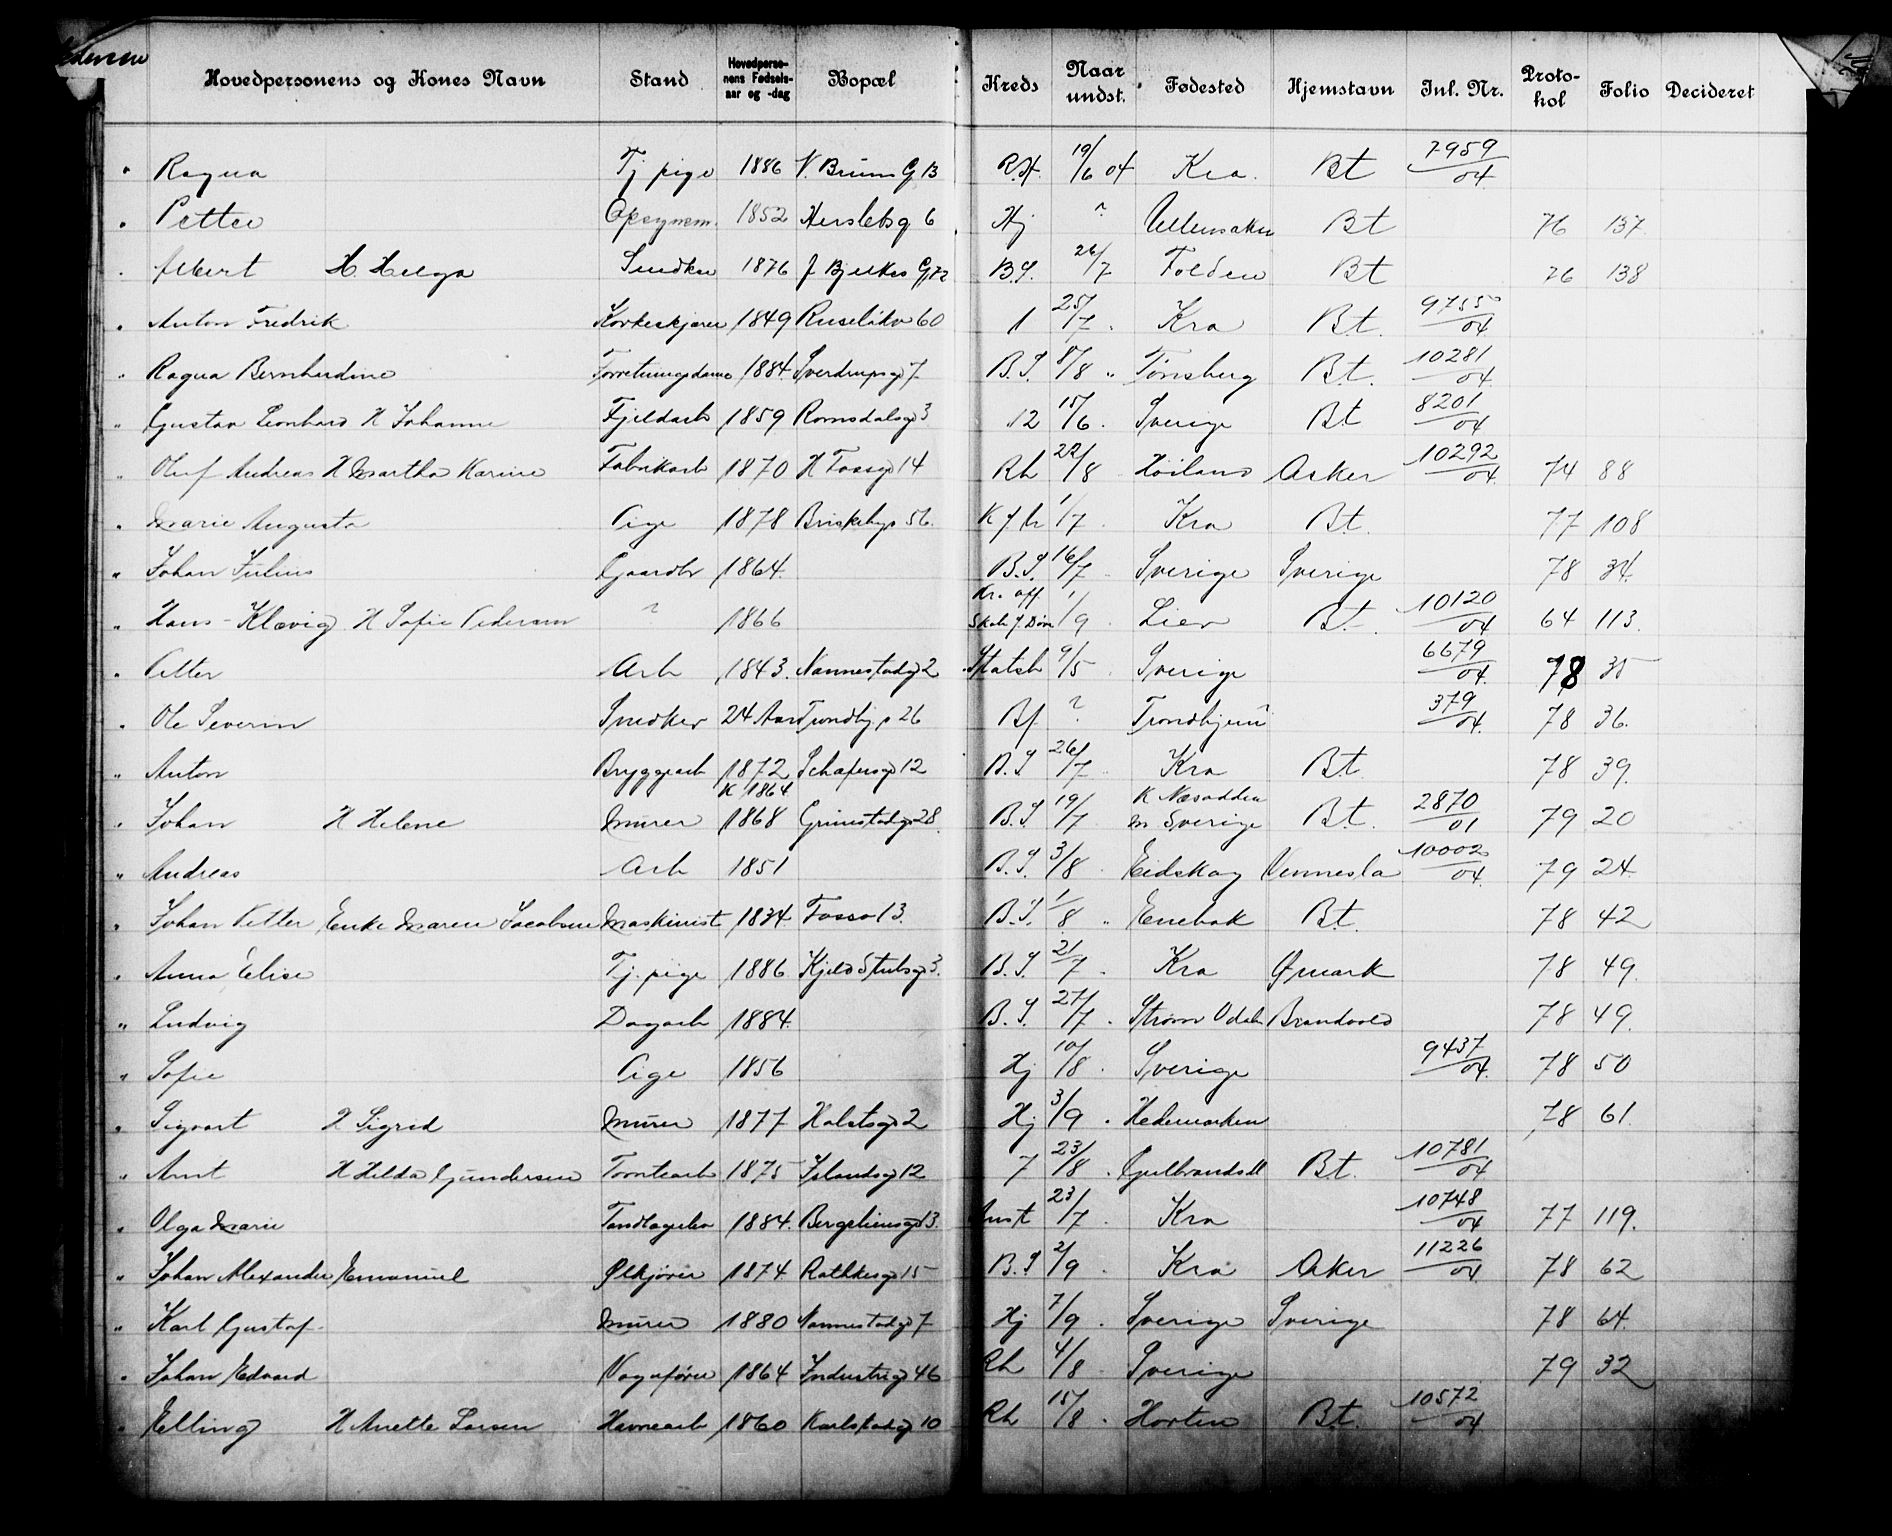 Hovedpersonens og Kones Navn Stand Hovedpersonens Fødselsaar og -dag Bopæl Kreds Naar undst. Fødested Hjemstavn Inl. Nr. Protokol Folio Decideret
" Ragna Tj pige 1886 N. Bruns G 13 R.H. 19/6 04 Kra. Bt 7959/04
" Petter Opsynsm. 1852 Herslebsg 6 Hj ? Ullensaker Bt 76 137
" Albert H. Helga Snedker 1876 J Bjelkes G 72 B.S. 26/7 Folden Bt 76 138
" Anton Fredrik Korkeskjærer 1849 Ruseløkv 60 1 25/7 " Kra Bt. 9755/04
" Ragna Bernhardine Forretningsdame 1884 Sverdrupsg 7 B.S. 8/8 " Tønsberg Bt. 10281/04
" Gustav Leonhard H Johanne Fjeldarb 1859 Romsdalsg 3 12 15/6 " Sverige Bt 8201/04
" Oluf Andreas H Martha Karine Fabrikarb 1870 H Fossg 14 Rh 22/8 Høiland Asker 10292/04 74 88
" Marie Augusta Pige 1878 Briskebyv 56 K f h 1/7 " Kra Bt. 77 108
" Johan Julius Gaardbr 1864 B.S. 16/7 " Sverige Sverige 78 34
" Hans Klavig H Sofie Pedersen ? 1866 Kr. off Skole f. Døve 1/9 " Lier Bt. 10120/04 64 113
" Petter Arb 1843 Nannestadg 2 Statsb 9/5 " Sverige 6679/04 78 35
" Ole Severin Snedker 24 Aar Trondhj.v 26 Bf ? Trondhjem 379/04 78 36.
" Anton Bryggearb 1872 Schafersg 12 B.S 26/7 " Kra Bt. 78 39.
" Johan H Helene Murer K 1864 1868 Grimstadg 28 B.S 19/7 K Næsodden M Sverige Bt. 2870/01 79 20
" Andreas Arb 1851 B.S. 3/8 " Eidskog Vennesla 10002/04 79 24
" Johan Petter Enke Maren Jacobsen Maskinist 1834 Fossv 13. B.S. 1/8 " Enebak Bt. 78 42
" Anna Elise Tj. pige 1886 Kjeld Stubsg 3. B.S. 21/7 " Kra Ømark 78 49.
" Ludvig Dagarb 1884 B.S. 27/7 " Strøm Odalen Brandvold 78 49.
" Sofie Pige 1856 Hj 10/8 " Sverige 9437/04 78 50
" Sigvart H Sigrid Murer 1877 Holstsg 2 Hj 3/9 " Hedemarken 78 61.
" Arnt H Hilda Gundersen Tomtearb 1875 Islandsg 12 7 23/8 " Gulbrandsdl Bt. 10781/04
" Olga Marie Tandlægeelev 1884. Bergsliensg 13. Anst 23/7 " Kra 10748/04 77 119.
" Johan Alexander Emanuel Ølkjører 1874 Rathkesg 15 B.S 2/9 " Kra Aker 11226/04 78 62
" Karl Gustaf Murer 1880 Nannestadg 7 Hj 7/9 " Sverige Sverige 78 64
" Johan Edvard Vognfører 1864 Industrig 46 Rh 4/8 " Sverige 79 32
" Elling H Anette Larsen Havnearb 1860 Karlstadg 10 Rh 15/8 " Horten Bt. 10572/04